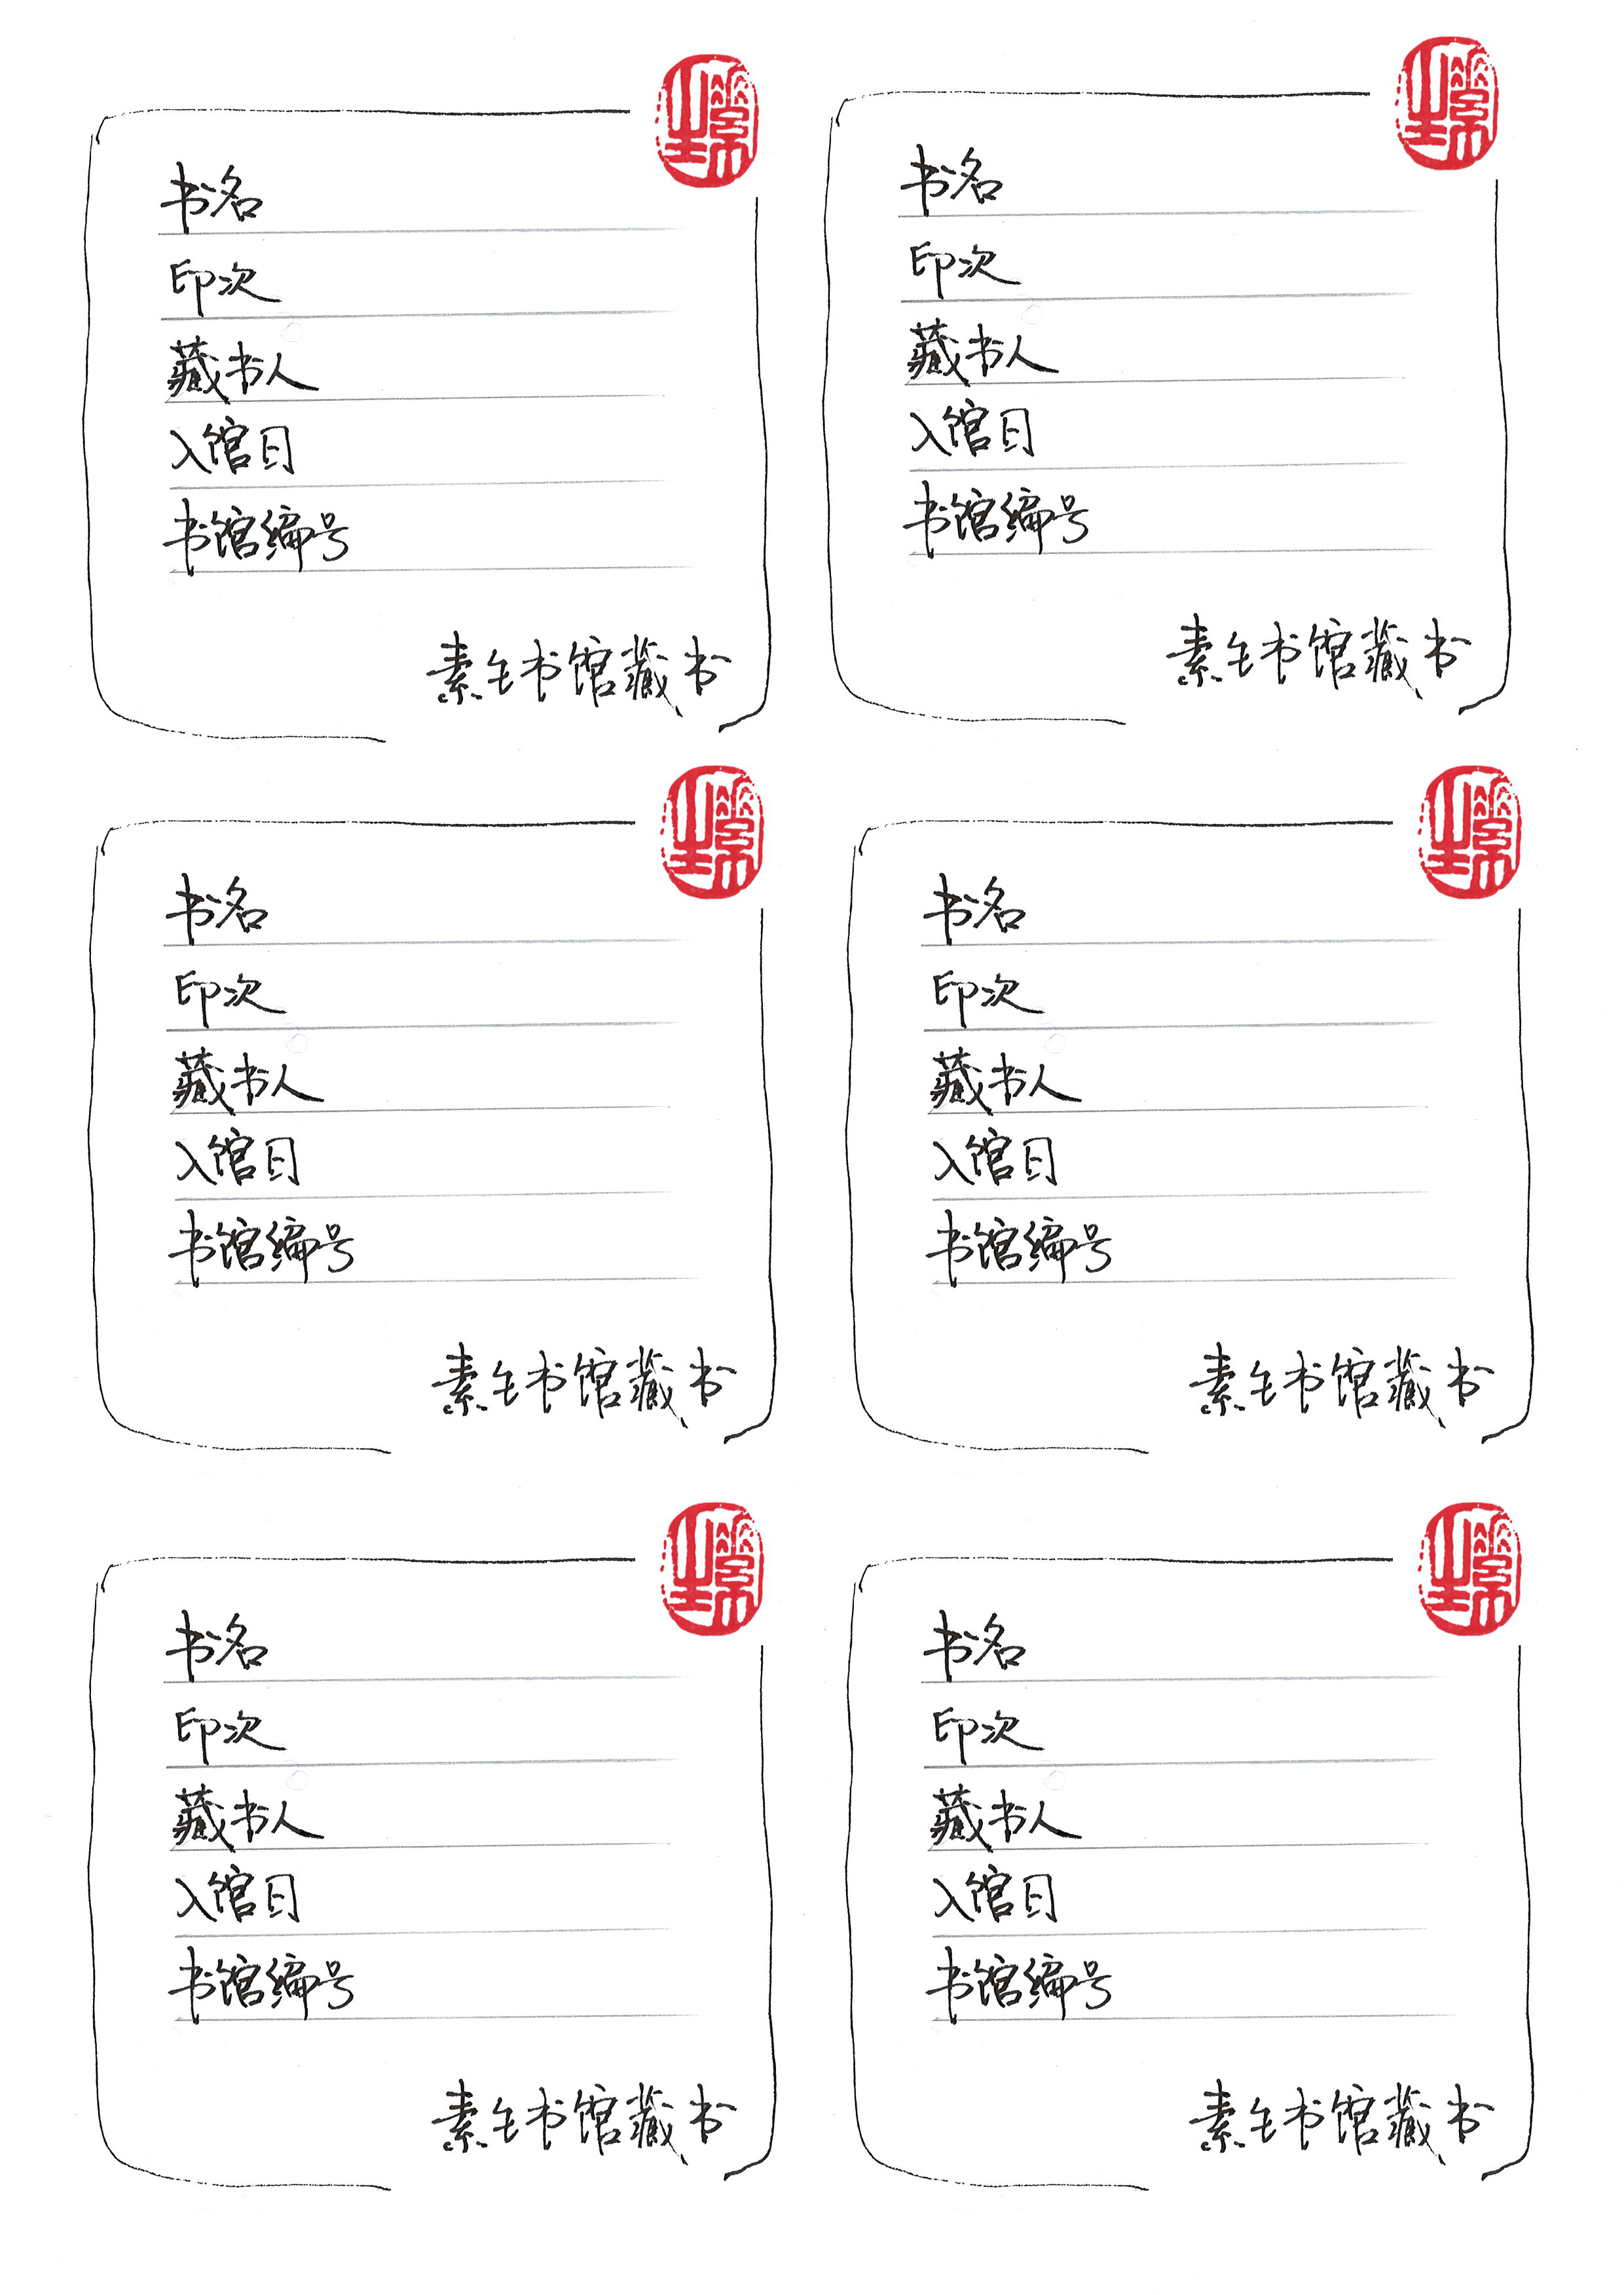 书名
印次
藏书人
入馆日
书馆编号
素生书馆藏书
书名
印次
藏书人
入馆日
书馆编号
素生书馆藏书
书名
印次
藏书人
入馆日
书馆编号
素生书馆藏书
书名
印次
藏书人
入馆日
书馆编号
素生书馆藏书
书名
印次
藏书人
入馆日
书馆编号
素生书馆藏书
书名
印次
藏书人
入馆日
书馆编号
素生书馆藏书